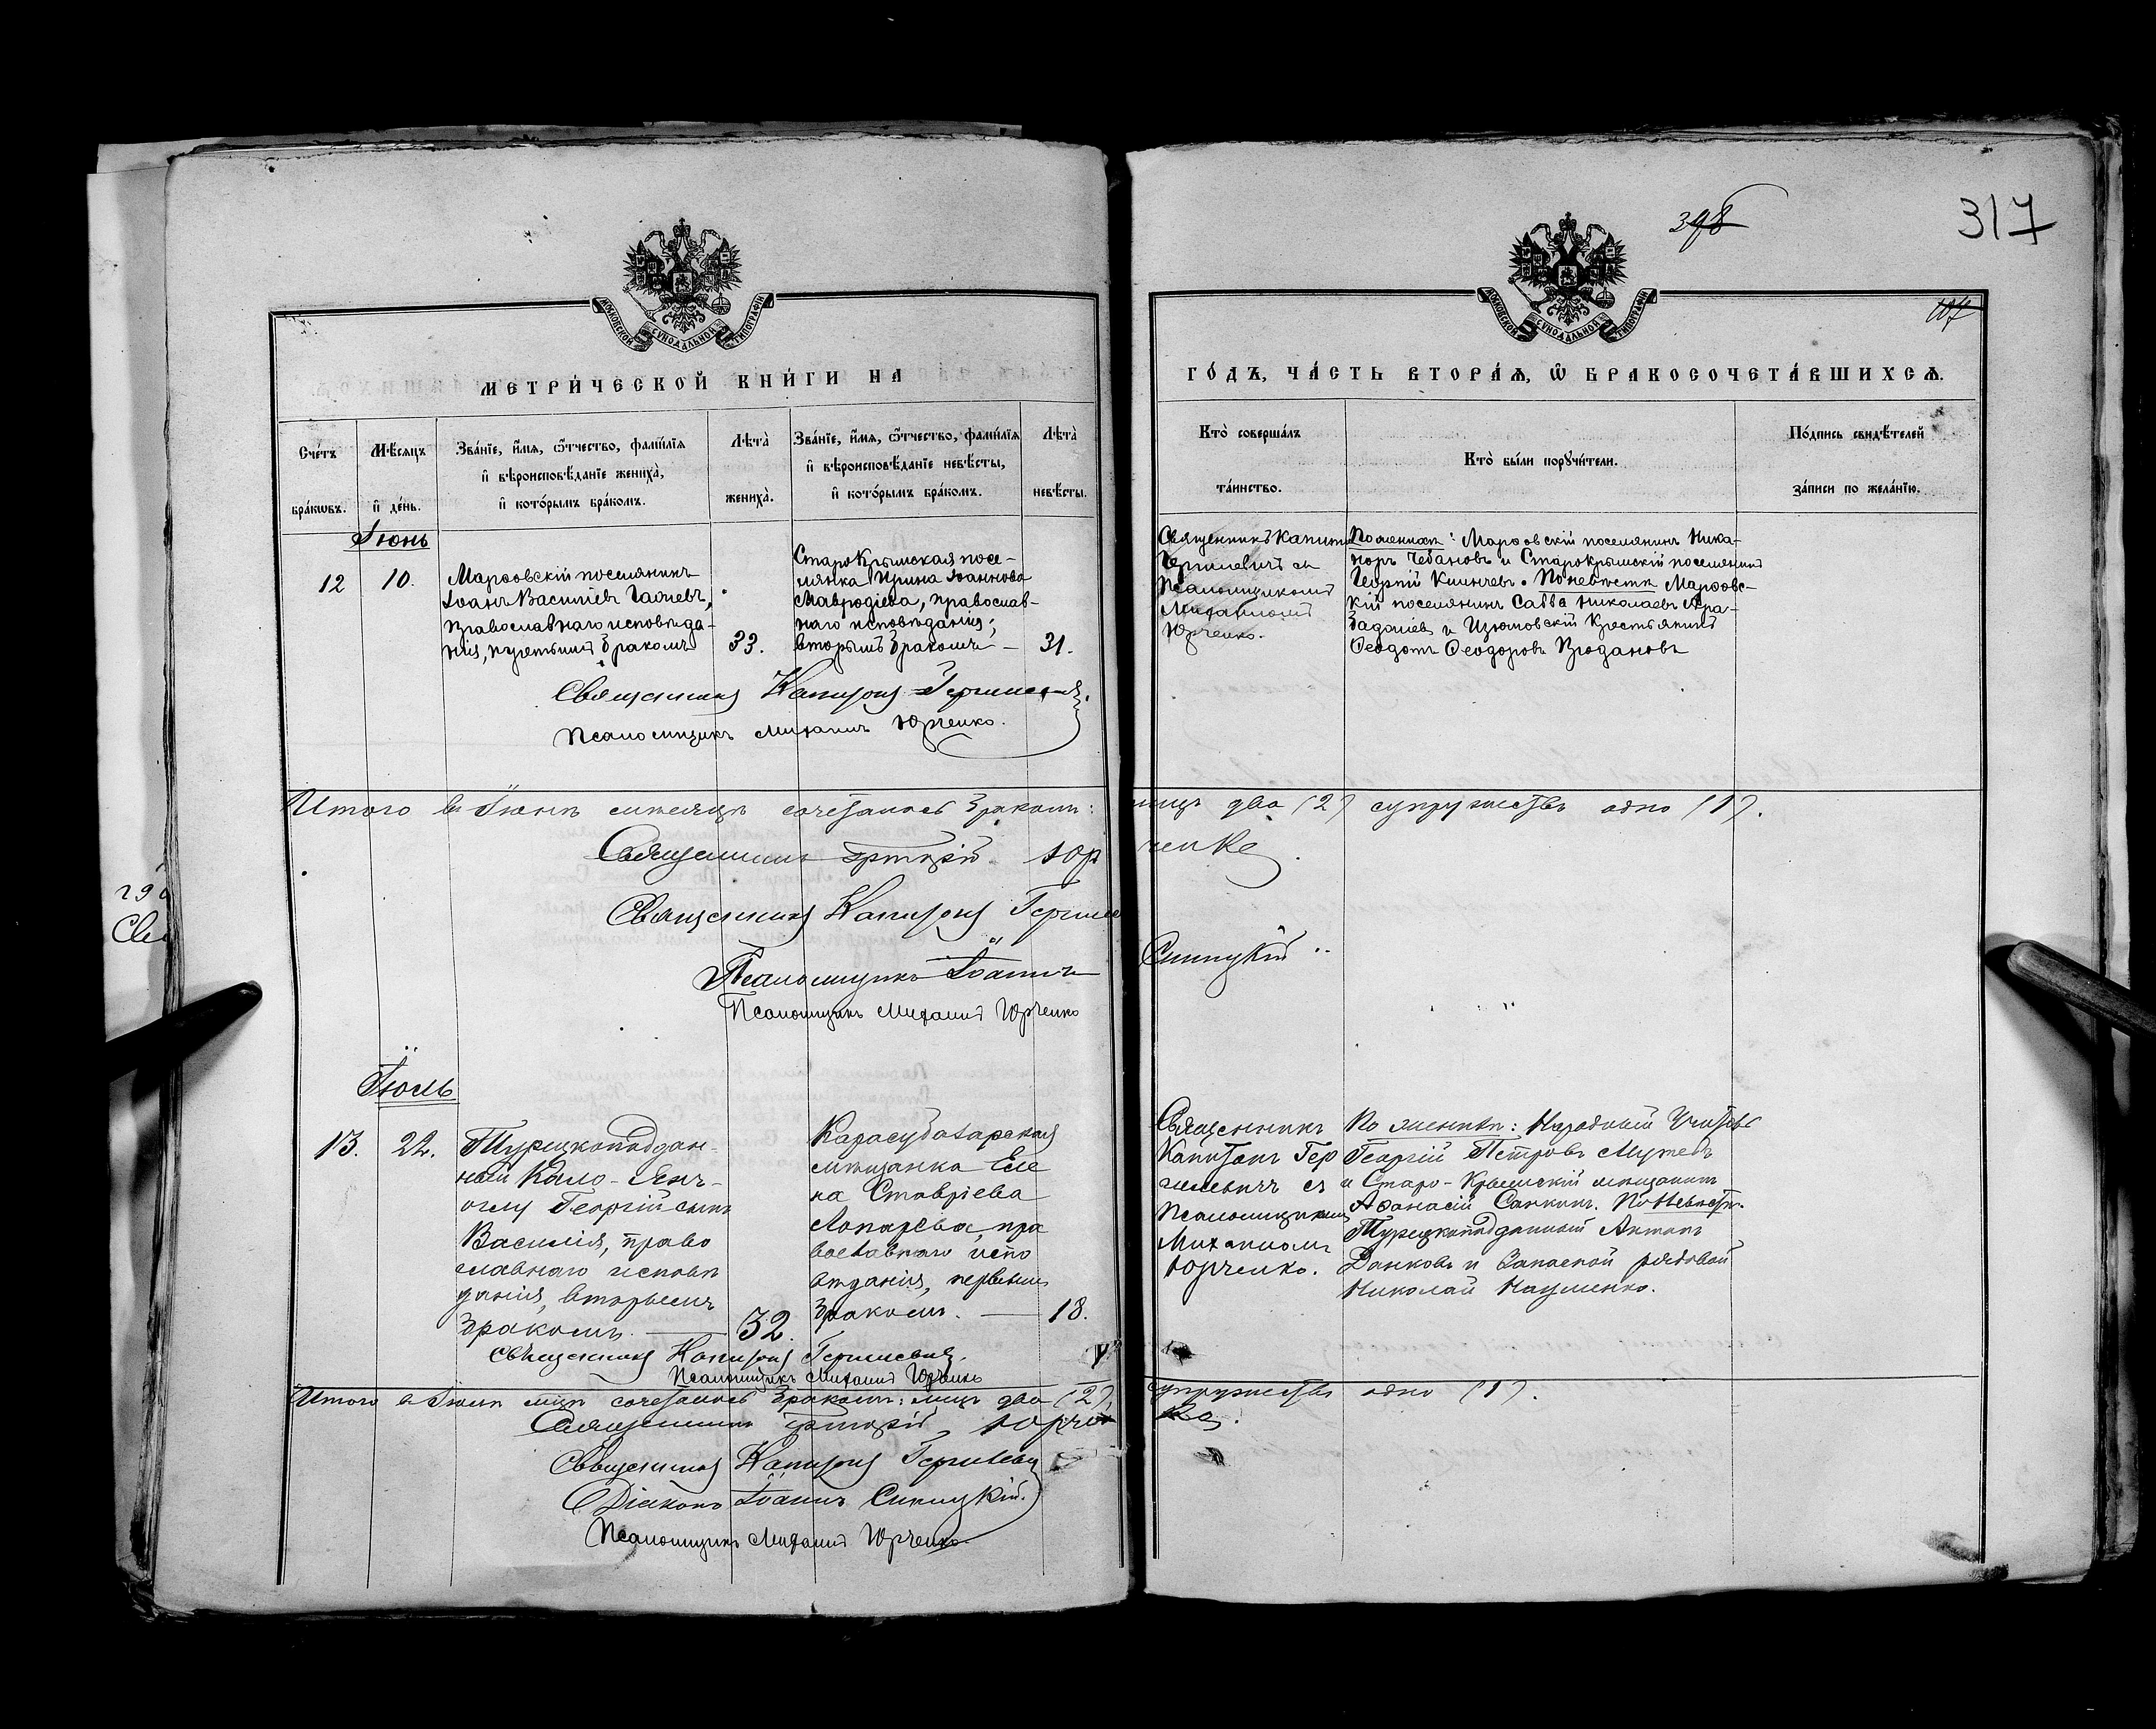 398
317
107
МОСКОВСКОЙ СѴНОДАЛЬНОЙ ТИПОГРАФІИ
МОСКОВСКОЙ СѴНОДАЛЬНОЙ ТИПОГРАФІИ
МЕТРИ́ЧЕСКОЙ КНИ́ГИ НА
ГО́ДЪ, ЧА́СТЬ ВТОРА́Я, Ѡ҆ БРАКОСОЧЕТА́ВШИХСЯ.
Сче́тъ бра́кѡвъ.
Мѣ́сяцъ и҆ де́нь.
Зва́нїе, и҆́мя, ѻ҆́тчество, фамѝлїя
и҆ вѣроисповѣ́данїе жениха̀,
и҆ кото́рымъ бра́комъ.
Лѣта̀ жениха̀.
Зва́нїе, и҆́мя, ѻ҆́тчество, фамѝлїя
и҆ вѣроисповѣ́данїе невѣ́сты,
и҆ кото́рымъ бра́комъ.
Лѣта̀ невѣ́сты.
Кто̀ соверша́лъ
та́инство.
Кто̀ бы́ли порꙋчи́тели.
По́дпись свидѣ́телей
за́писи по жела́нїю.
Іюнь
12
10.
Марѳовскій поселянинъ
Іоанъ Василіевъ
православнаго исповѣда-
нія, третьимъ бракомъ
33.
Старокрымская посе-
лянка Ирина Іоаннова
Мавродіева, православ-
наго исповѣданія;
вторымъ бракомъ —
31.
Священникъ Капитонъ
Гергилевичъ съ
Псаломщикомъ
Михаиломъ
Юрченко.
По женихѣ: Марѳовскій поселянинъ Ника-
норъ Чебановъ и Старокрымскій поселянинъ
Георгій Клинчевъ. По невѣстѣ Марѳовс-
кій поселянинъ Савва Николаевъ Ара-
и Изюмовскій Крестьянинъ
Ѳеодотъ Ѳеодоровъ
Священникъ Капитонъ Гергилевичъ.
Псаломщикъ Михаилъ Юрченко.
Итого въ Іюнѣ мѣсяцѣ сочеталось бракомъ: лицъ два (2) супружествъ одно (1).
Священникъ Юрченко.
Священникъ Капитонъ
Псаломщикъ Іоаннъ Синицкій
Псаломщикъ Михаилъ Юрченко
Іюль
13.
22.
Турецкоподдан-
ный
оглу Георгій сынъ
Василія, право
славнаго исповѣ
данія, вторымъ
бракомъ. —
32.
Карасубазарская
мѣщанка Еле
на Ставріева
Лопарева, пра
вославнаго испо
вѣданія, первымъ
бракомъ. —
18.
Священникъ
Капитонъ Гер
гилевичъ съ
Псаломщикомъ
Михаиломъ
Юрченко.
По женихѣ: Народный Учитель
Георгій Петровъ
и Старо-Крымскій мѣщанинъ
Аѳанасій Санкинъ. По невѣстѣ
Турецкоподданный Антонъ
Данковъ и Запасной рядовой
Николай Науменко.
Священникъ Капитонъ Гергилевичъ.
Псаломщикъ Михаилъ Юрченко
Итого въ Іюлѣ мцѣ сочеталось бракомъ: лицъ два (2), супружествъ одно (1).
Священникъ Юрченко.
Священникъ Капитонъ Гергилевичъ
Діаконъ Іоаннъ Синицкій.
Псаломщикъ Михаилъ Юрченко